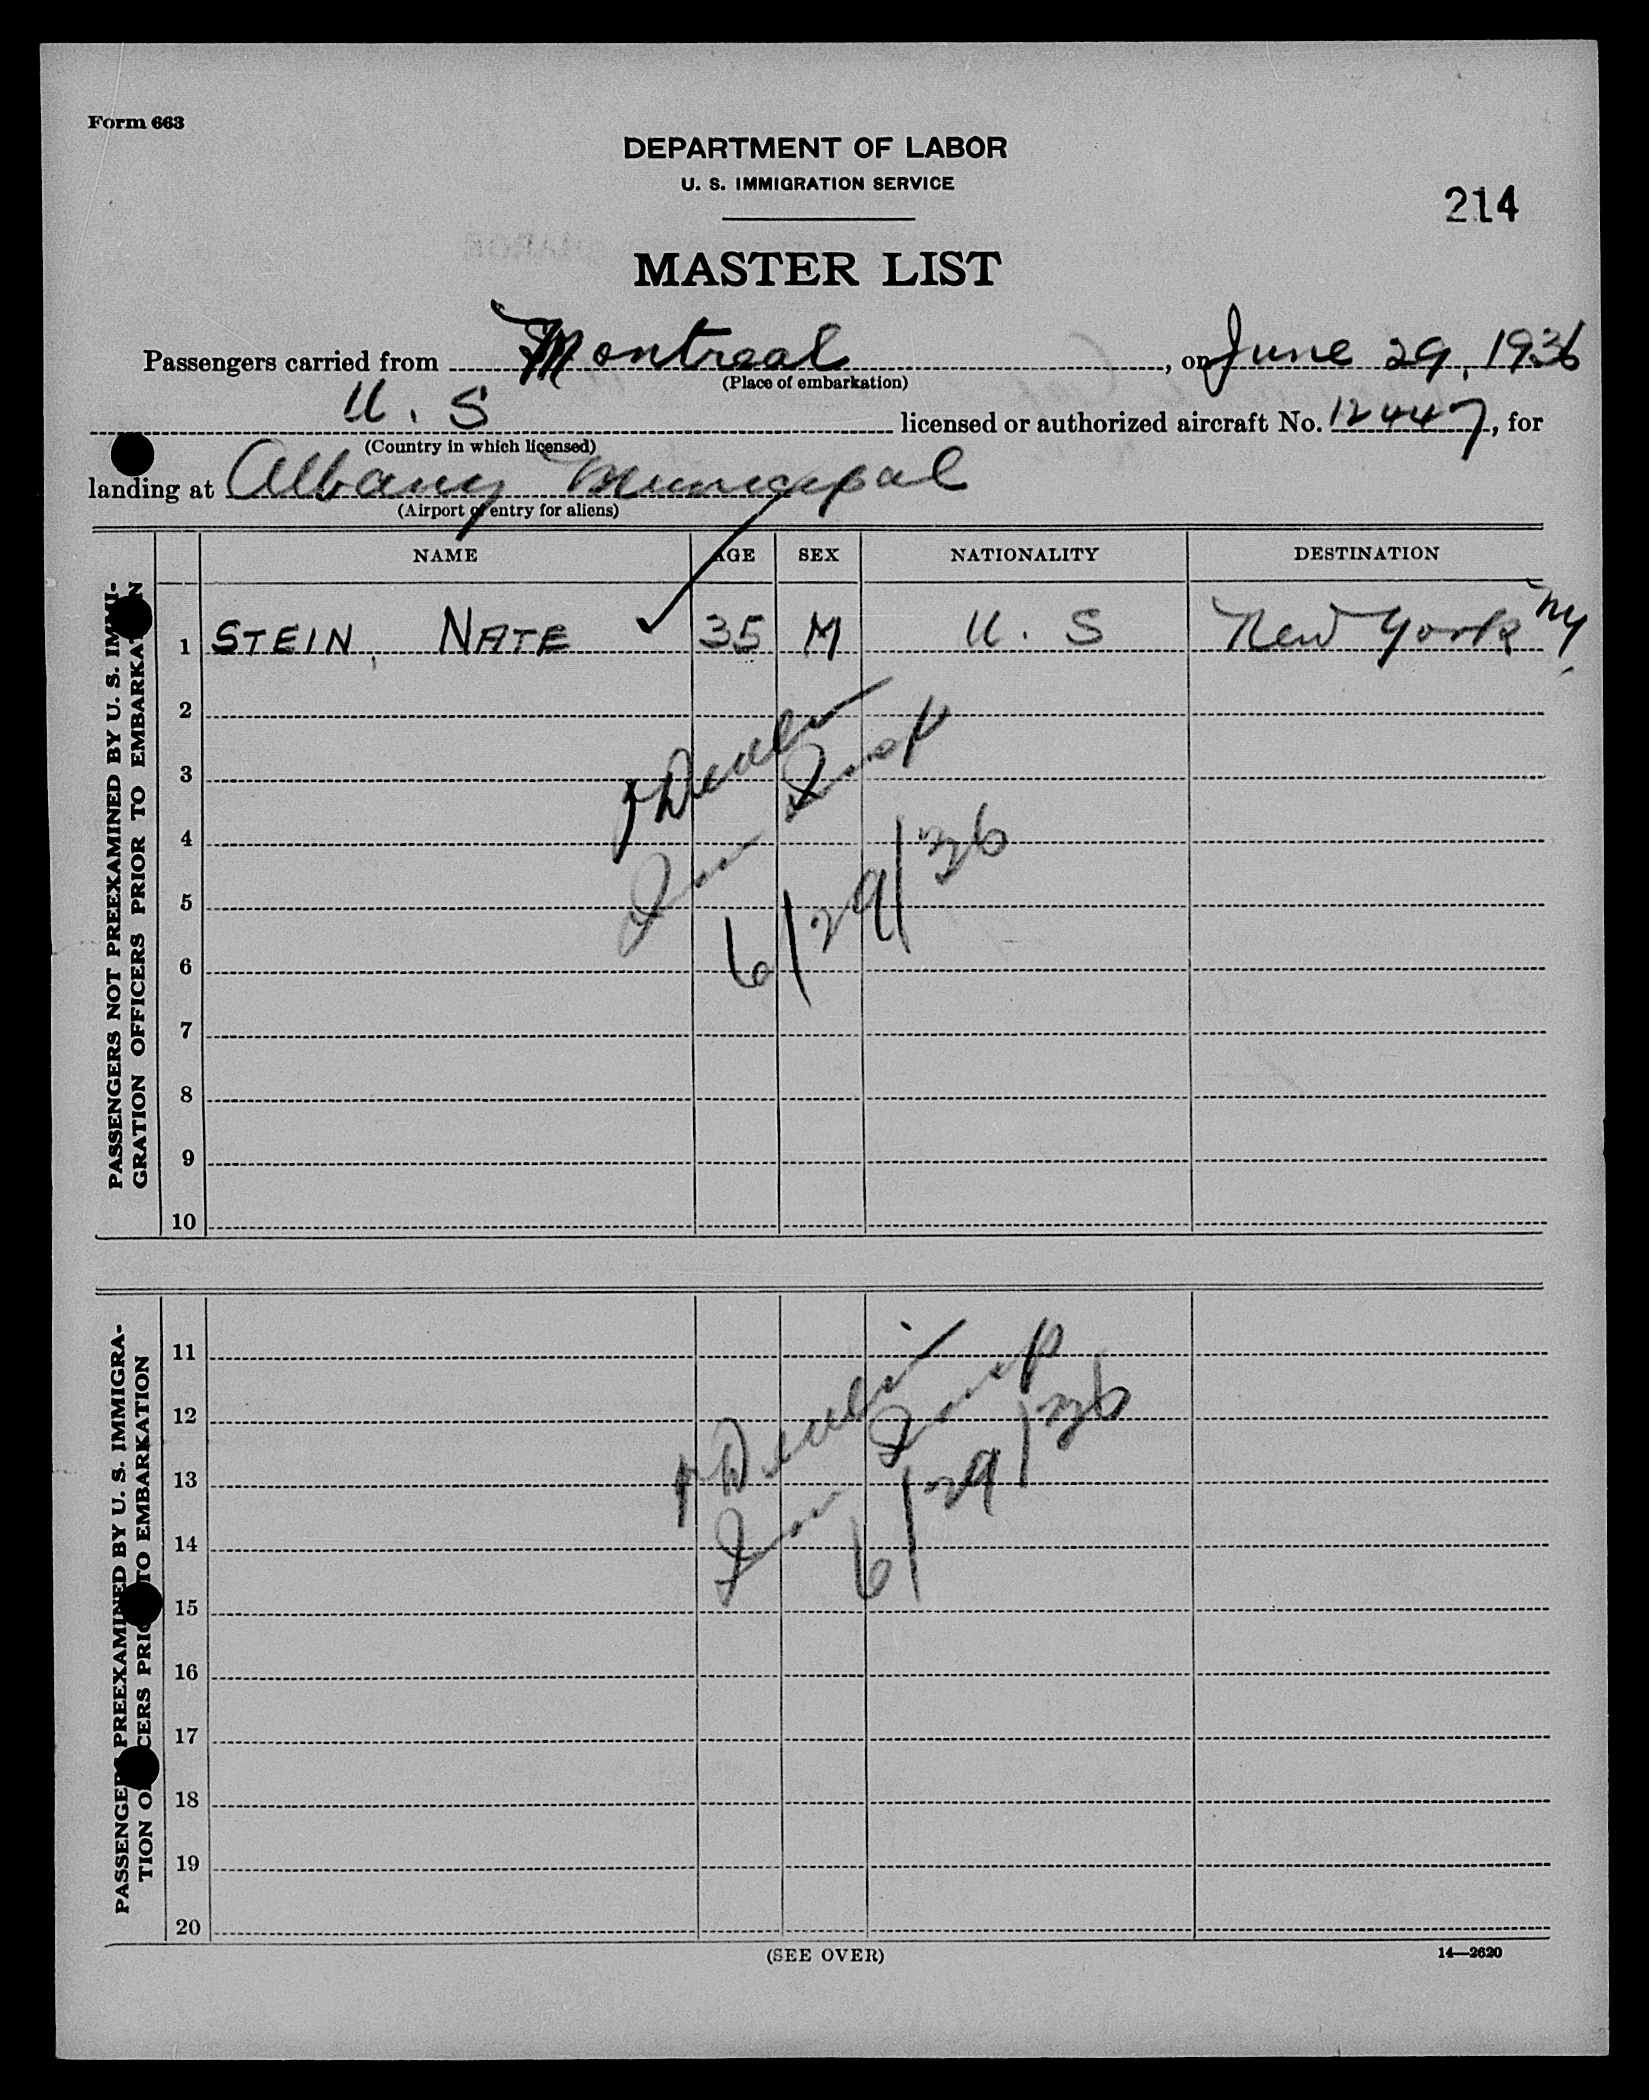 Form 663
DEPARTMENT OF LABOR
U. S. IMMIGRATION SERVICE
214
MASTER LIST
Passengers carried from Montreal, on June 29, 1936
(Place of embarkation)
U. S licensed or authorized aircraft No. 12447, for
(Country in which licensed)
landing at Albany Municipal
(Airport of entry for aliens)
NAME AGE SEX NATIONALITY DESTINATION
PASSENGERS NOT PREEXAMINED BY U. S. IMMI-
GRATION OFFICERS PRIOR TO EMBARKATION
1 STEIN, NATE ✓ 35 M U. S New York NY
2
3
4
5
6
7
8
9
10
Insp
6/29/36
PASSENGERS PREEXAMINED BY U. S. IMMIGRA-
TION OFFICERS PRIOR TO EMBARKATION
11
12
13
14
15
16
17
18
19
20
Insp
6/29/36
(SEE OVER)
14—2620